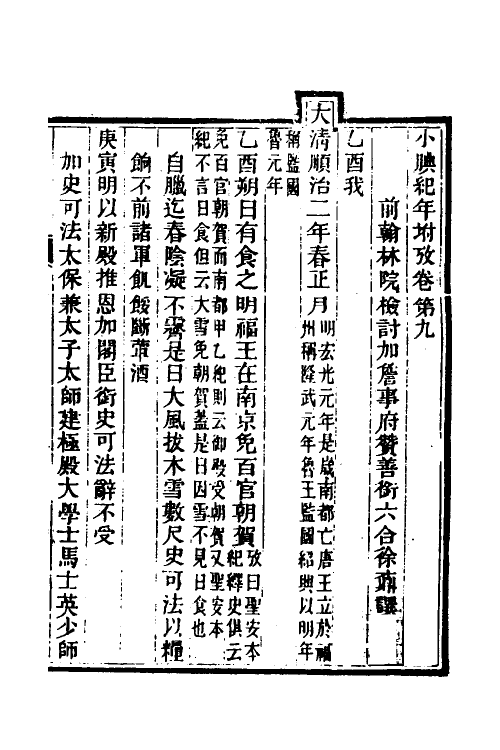 小腆紀年坿攷卷第九
前翰林院檢討加詹事府贊善銜六合徐鼒譔
乙酉我
大清順治二年春正月明宏光元年是歲南都亡唐王立於福
州稱隆武元年魯王監國紹興以明年
稱監國
魯元年
乙酉朔日有食之明福王在南京免百官朝賀攷曰聖安本
紀繹史俱云
免百官朝賀而南都甲乙紀則云御殿受朝賀又聖安本
紀不言日食但云大雪免朝賀蓋是日因雪不見日食也
自臘迄春陰凝不霽是日大風拔木雪數尺史可法以糧
餉不前諸軍飢餒斷葷酒
庚寅明以新殿推恩加閣臣銜史可法辭不受
加史可法太保兼太子太師建極殿大學士馬士英少師